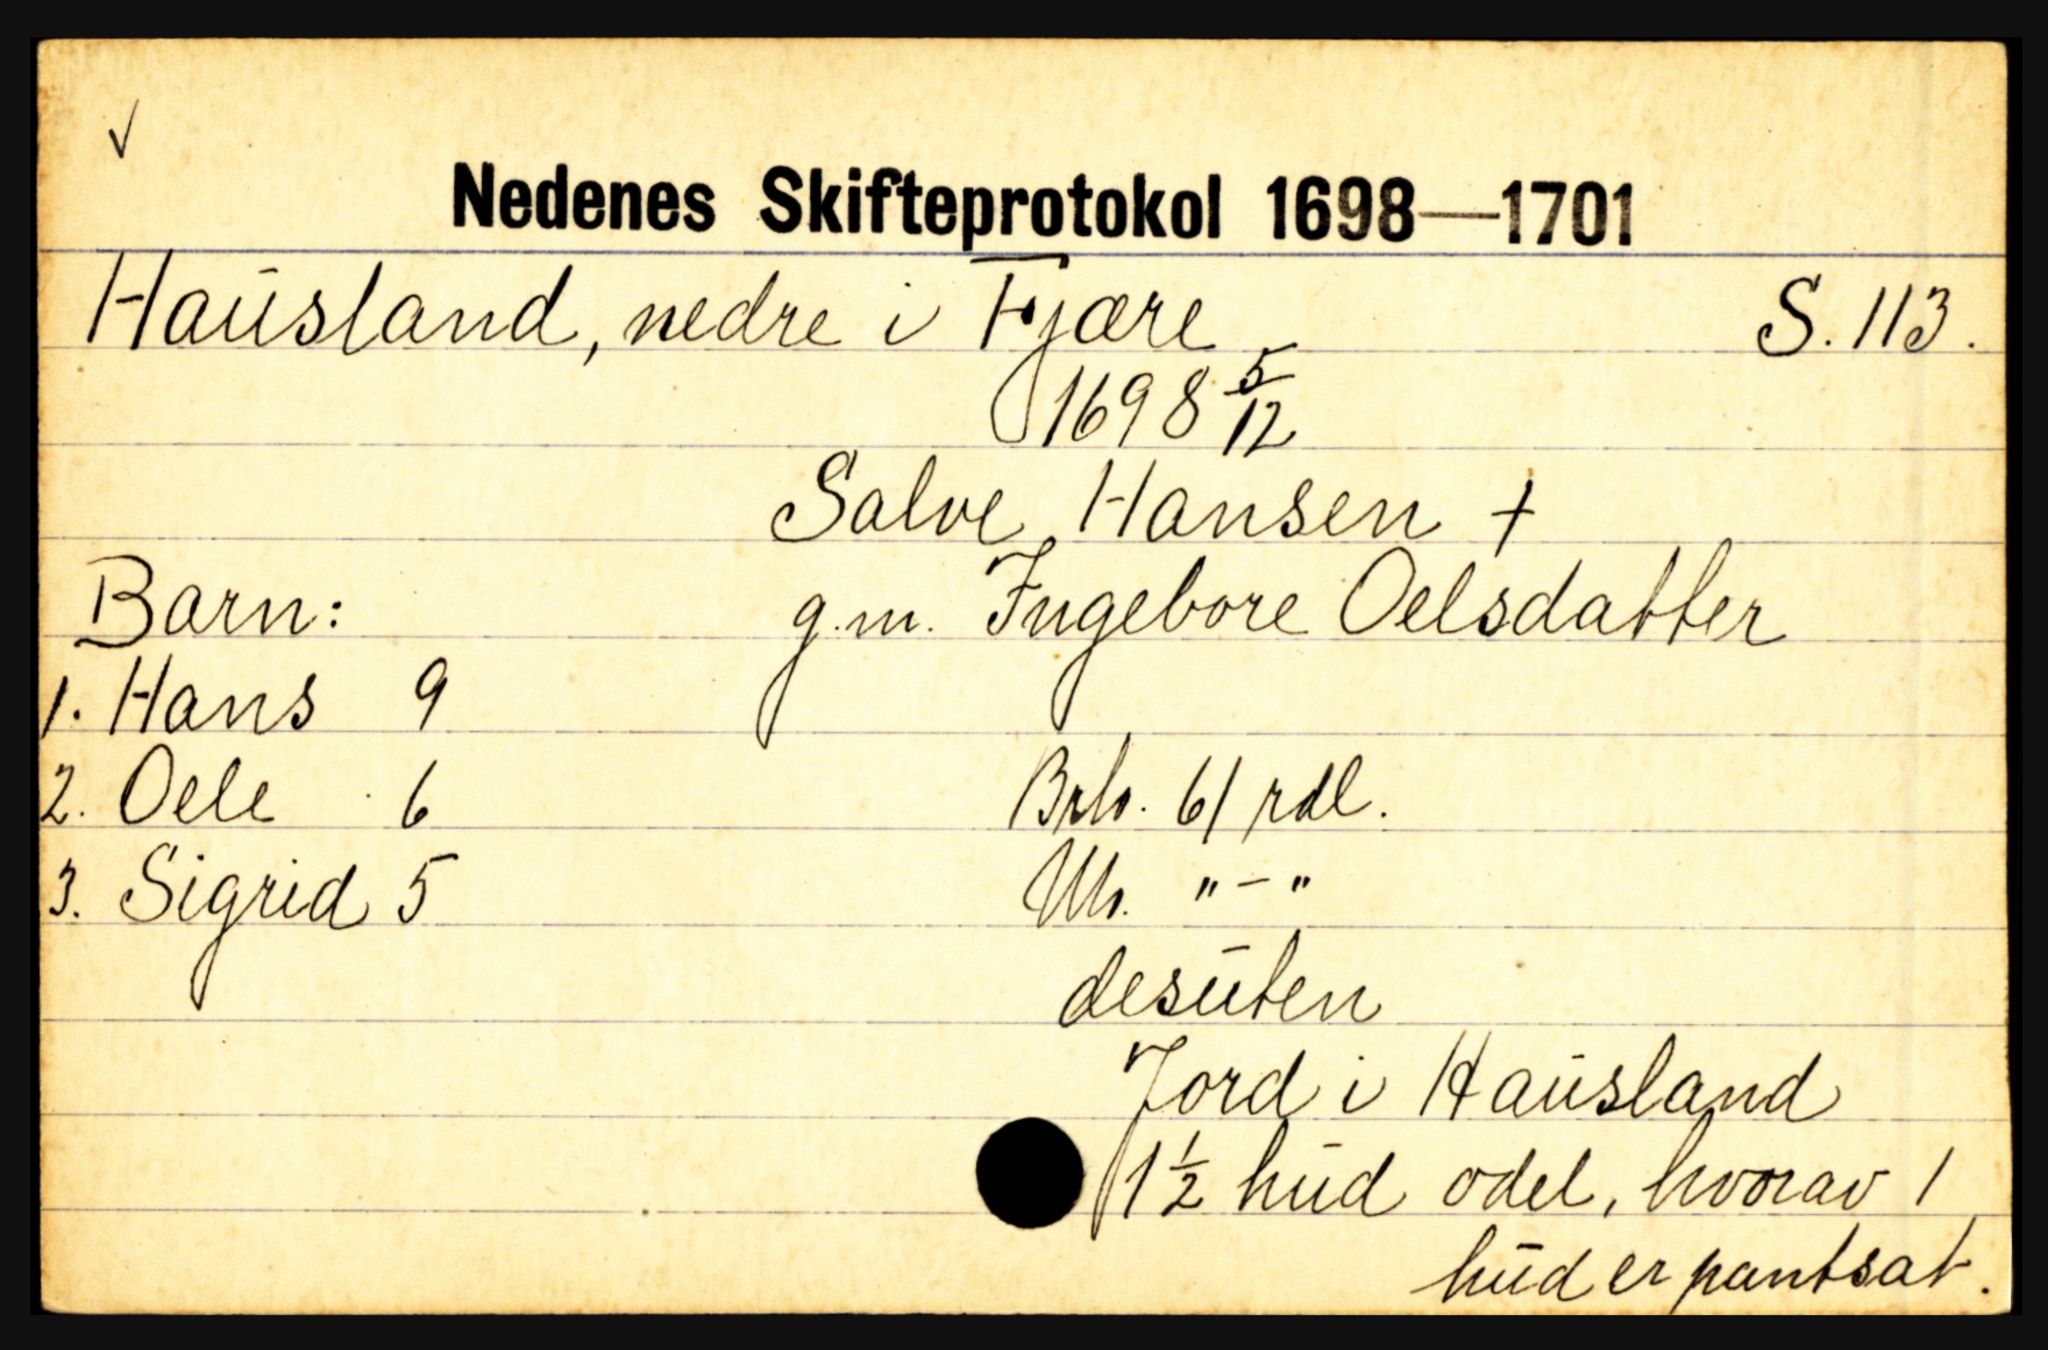 ✓
Nedenes Skifteprotokol 1698—1701
Hausland, nedre i Fjære S. 113.
1698 5/12
Salve Hansen +
Barn: g.m. Ingebore Oelsdatter
1. Hans 9
2. Oele 6 Brto. 61 rdl.
3. Sigrid 5 "-"
desuten
Jord i Hausland
1 1/2 hud odel, hvorav 1
hud er pantsat.